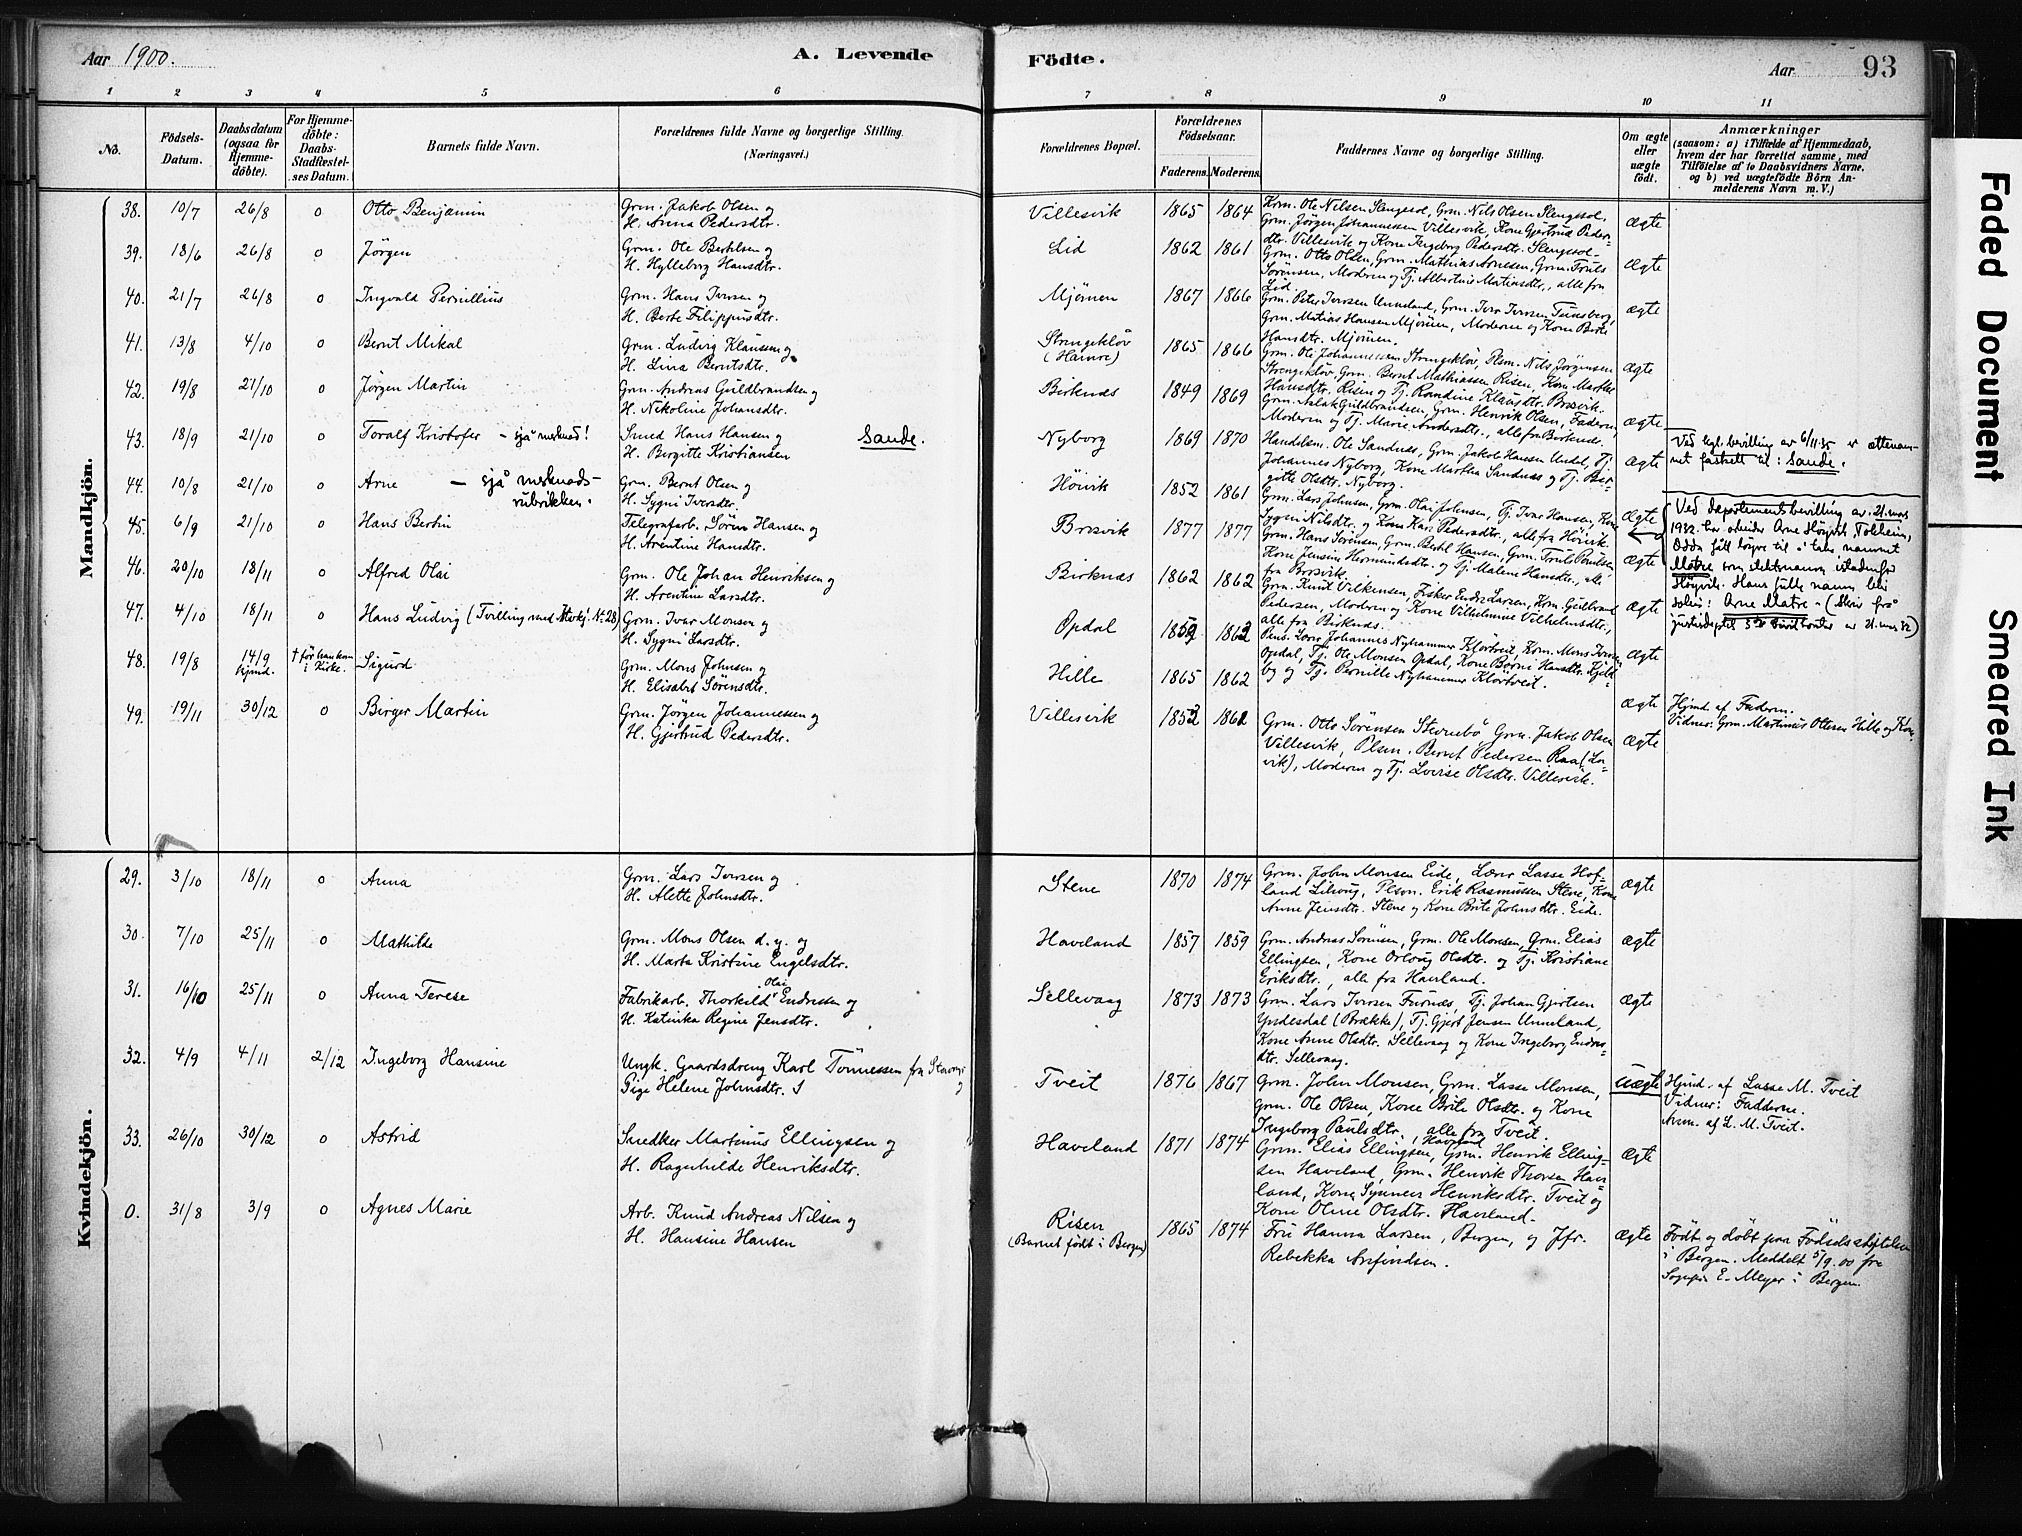 Aar 1900. A. Levende Födte. Aar 93
1 2 3 4 5 6 7 8 9 10 11
No. Födsels-Datum. Daabsdatum (ogsaa for Hjemme-döbte). For Hjemme-döbte: Daabs-Stadfæstel-ses Datum. Barnets fulde Navn. Forældrenes fulde Navne og borgerlige Stilling. (Næringsvei.) Forældrenes Bopæl. Forældrenes Födselsaar. Faderens. Moderens. Faddernes Navne og borgerlige Stilling. Om ægte eller uægte födt. Anmærkninger (saasom: a) i Tilfælde af Hjemmedaab, hvem der har forrettet samme, med Tilföielse af to Daabsvidners Navne, og b) ved uægtefödte Börn An-melderens Navn m. V.)
Mandkjön.
38. 10/7 26/8 0 Otto Benjamin Grm. Jakob Olsen og
H. Anna Pedersdtr. Villesvik 1865 1864 Krm. Ole Nilsen Slengesol, Grm. Nils Olsen Slengesol,
Grm. Jørgen Johannessen Villesvik, Kone Gjertrud Peder-
dtr. Villesvik og Kone Ingeborg Pedersdtr. Slengesol. ægte
39. 18/6 26/8 0 Jörgen Grm. Ole Bertilsen og
H. Hylleborg Hansdtr. Lid 1862 1861 Grm. Otto Olsen, Grm. Mathias Arnesen, Grm. Truls
Sörensen, Moderen og Tj. Albertine Matiasdtr., alle fra
Lid. ægte
40. 21/7 26/8 0 Ingvald Pernillius Grm. Hans Iversen og
H. Berte Filippusdtr. Mjömen 1867 1866 Grm. Peter Iversen Unneland, Grm. Iver Iversen Tunsberg,
Grm. Matias Hansen Mjömen, Moderen og Kone Brite
Hansdtr. Mjömen. ægte
41. 13/8 4/10 0 Bernt Mikal Grm. Ludvig Klausen og
H. Lina Berntsdtr. Strengeklöv
(Hamre) 1865 1866 Grm. Ole Johannessen Strengeklöv, Plsm. Nils Jörgensen
Strengeklöv, Grm. Bernt Mathiassen Risen, Kone Marthe
Hansdtr. Risen og Tj. Randine Klausdtr. Brosvik. ægte
42. 19/8 21/10 0 Jørgen Martin Grm. Andreas Guldbrandsen og
H. Nikoline Johansdtr. Birknæs 1849 1869 Grm. Aslak Guldbrandsen, Grm. Henrik Olsen, Faderen,
Moderen og Tj. Marie Andersdtr., alle fra Birknæs. ægte
43. 18/9 21/10 0 Toralf Kristofer – sjå merknad! Smed Hans Hansen og Sande.
H. Birgitte Kristiansen Nyborg 1869 1870 Handelsm. Ole Sandnes, Grm. Jakob Hansen Undal, Tj.
Johannes Nyborg, Kone Martha Sandnes og Tj. Bir-
gitte Olsdtr. Nyborg. ægte Ved kgl. bevilling av 6/11 35 er ættenam-
net fastsett til: Sande.
44. 10/8 21/10 0 Arne – sjå merknads-
rubrikken. Grm. Bernt Olsen og
H. Sygni Iversdtr. Höivik 1852 1861 Grm. Lars Johnsen, Grm. Olai Johnsen, Tj. Ivar Hansen, Kone
Sygni Nilsdtr. og Kone Kari Pedersdtr., alle fra Höivik. ægte Ved departementsbevilling av 21. mars
1932 har arbeider Arne Höyvik, Tokheim,
Odda fått løyve til å taka namnet
Matre som slektsnamn istadenfor
Höyvik. Hans fulle namn blir
soleis: Arne Matre. – (Skriv frå
45. 6/9 21/10 0 Hans Bertin Telegrafarb. Sörin Hansen og
H. Arentine Hansdtr. Brosvik 1877 1877 Grm. Hans Sörensen, Grm. Bertil Hansen, Grm. Truls Paulsen
Kone Jensine Hermundsdtr. og Tj. Malene Hansdtr., alle
fra Brosvik. ægte
46. 20/10 18/11 0 Alfred Olai Grm. Ole Johan Henriksen og
H. Arentine Larsdtr. Birknæs 1862 1862 Grm. Knut Vilkensen, Fisker Endre Larsen, Krm. Gulbrand
Pedersen, Moderen og Kone Vilhelmine Vilhelmsdtr.,
alle fra Birknæs. ægte
47. 4/10 18/11 0 Hans Ludvig (Tvilling med Mandkj. No 28) Grm. Ivar Monsen og
H. Sygni Larsdtr. Opdal 1859 1862 Pens. Lærer Johannes Nyhammer Klortveit, Krm. Mons Iversen
Opdal, Tj. Ole Monsen Opdal, Kone Berni Hansdtr. Kjeld-
by og Tj. Pernille Nyhammer Klortveit. ægte
48. 19/8 14/9 hjemd. † för han kom
i Kirke. Sigurd Grm. Mons Johnsen og
H. Elisabet Sörensdtr. Hille 1865 1862 ægte Hjmd. af Faderen.
Vidner: Grm. Martinus Ottesen Hille og Kone
49. 19/11 30/12 0 Birger Martin Grm. Jörgen Johannessen og
H. Gjertrud Pedersdtr. Villesvik 1852 1861 Grm. Otto Sörensen Stevnebö, Grm. Jakob Olsen
Villesvik, Plsm. Bernt Pedersen Raa (La-
vik), Moderen og Tj. Lovise Olsdtr. Villesvik. ægte
Kvindekjön.
29. 3/10 18/11 0 Anna Grm. Lars Iversen og
H. Alette Johnsdtr. Stene 1870 1874 Grm. John Monsen Eide, Lærer Lasse Hof-
land Lihaug, Plsm. Erik Rasmussen Stene, Kone
Anne Jensdtr. Stene og Kone Brite Johnsdtr. Eide. ægte
30. 7/10 25/11 0 Mathilde Grm. Mons Olsen d. y. og
H. Marta Kristine Engelsdtr. Haveland 1857 1859 Grm. Andreas Sörensen, Grm. Ole Monsen, Grm. Elias
Ellingsen, Kone Orloug Olsdtr. og Tj. Kristiane
Eriksdtr., alle fra Haveland. ægte
31. 16/10 25/11 0 Anna Terese Fabrikarb. Thorkild Olai Endresen og
H. Katinka Regine Jensdtr. Sellevaag 1873 1873 Grm. Lars Iversen Furnæs, Tj. Johan Gjertsen
Yndesdal (Brække), Tj. Gjert Jensen Unneland,
Kone Anne Olsdtr. Sellevaag og Kone Ingeborg Endres-
dtr. Sellevaag. ægte
32. 4/9 4/11 2/12 Ingeborg Hansine Ungk. Gaardsdreng Karl Tönnessen fra Stavanger
og
Pige Helene Johnsdtr. Tveit 1876 1867 Grm. John Monsen, Grm. Lasse Monsen,
Grm. Ole Olsen, Kone Brite Olsdtr. og Kone
Ingeborg Paulsdtr., alle fra Tveit. uægte Hjmd. af Lasse M. Tveit
Vidner: Fadderne.
Anm. af L. M. Tveit.
33. 26/10 30/12 0 Astrid Snedker Martinus Ellingsen og
H. Ragnhilde Henriksdtr. Haveland 1871 1874 Grm. Elias Ellingsen Haveland, Grm. Henrik Elling-
sen Haveland, Grm. Henrik Thorsen Have-
land, Kone Synneve Henriksdtr. Tveit og
Kone Oline Olsdtr. Haveland. ægte
0. 31/8 3/9 0 Agnes Marie Arb. Knud Andreas Nilsen og
H. Hansine Hansen Risen
(Barnet födt i Bergen) 1865 1874 Fru Hanna Larsen, Bergen, og Jfr.
Rebekka Arnfindsen. ægte Födt og döbt paa Födselsstiftelsen
i Bergen. Meddelt 5/9.00 fra
Sognepr. E. Meyer i Bergen.
Faded Document
Smeared Ink